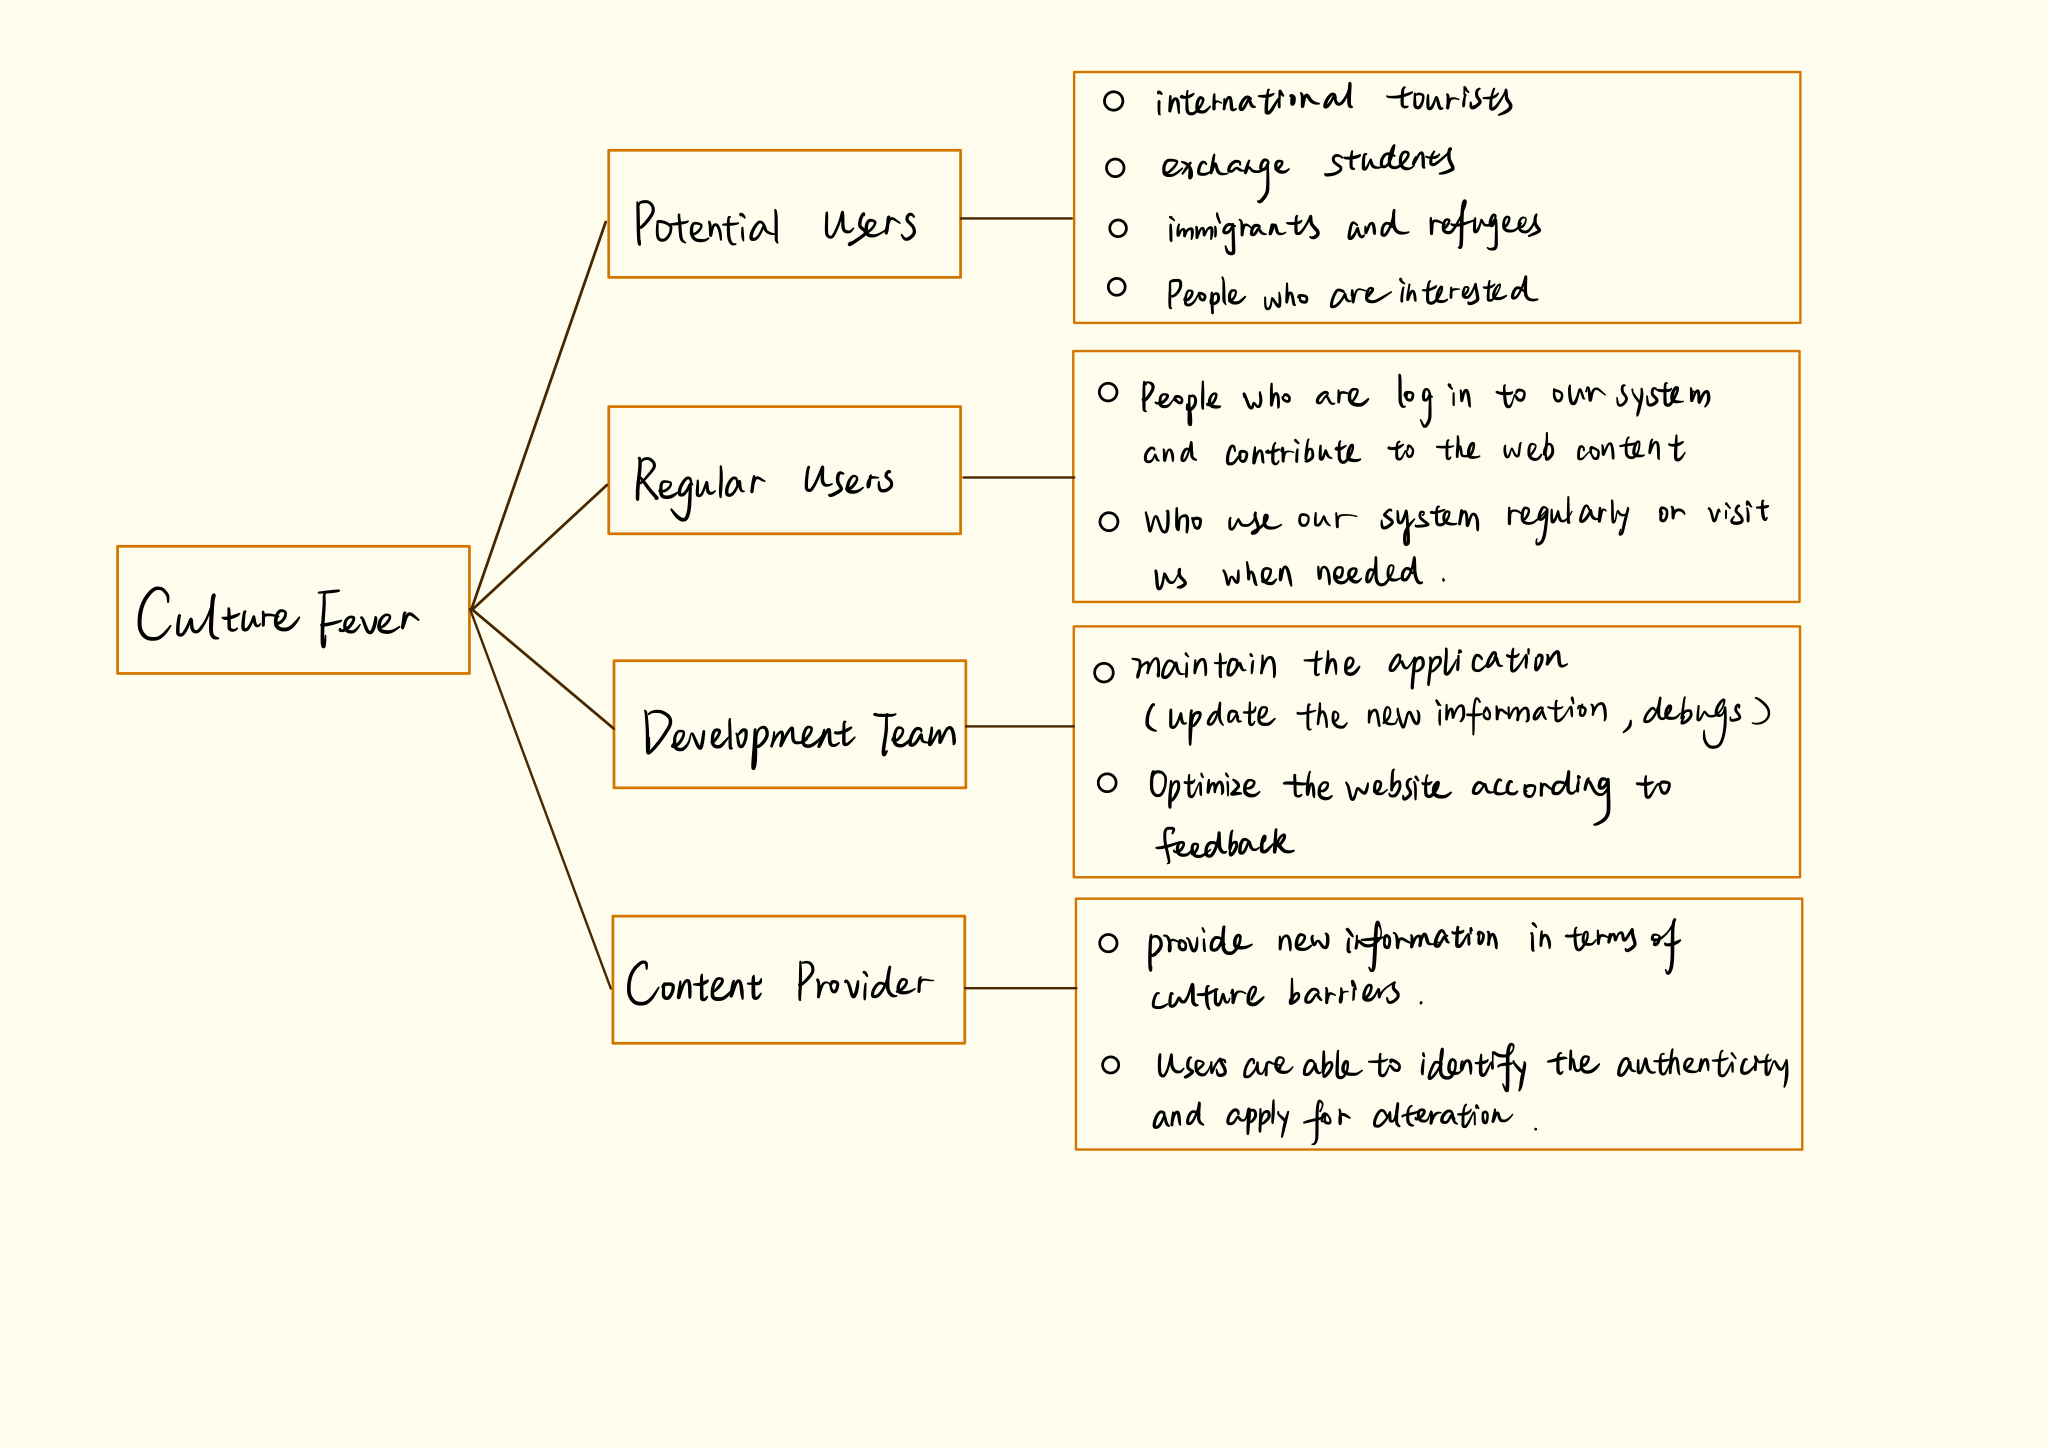 international tourists
exchange students
immigrants and refugees
People who are interested
Potential Users
People who are log in to our system
and contribute to the web content
Who use our system regularly or visit
us when needed.
Regular Users
Culture Fever
maintain the application
(update the new imformation, debugs)
Optimize the website according to
feedback
Development Team
provide new information in terms of
culture barriers.
Users are able to identify the authenticity
and apply for alteration.
Content Provider